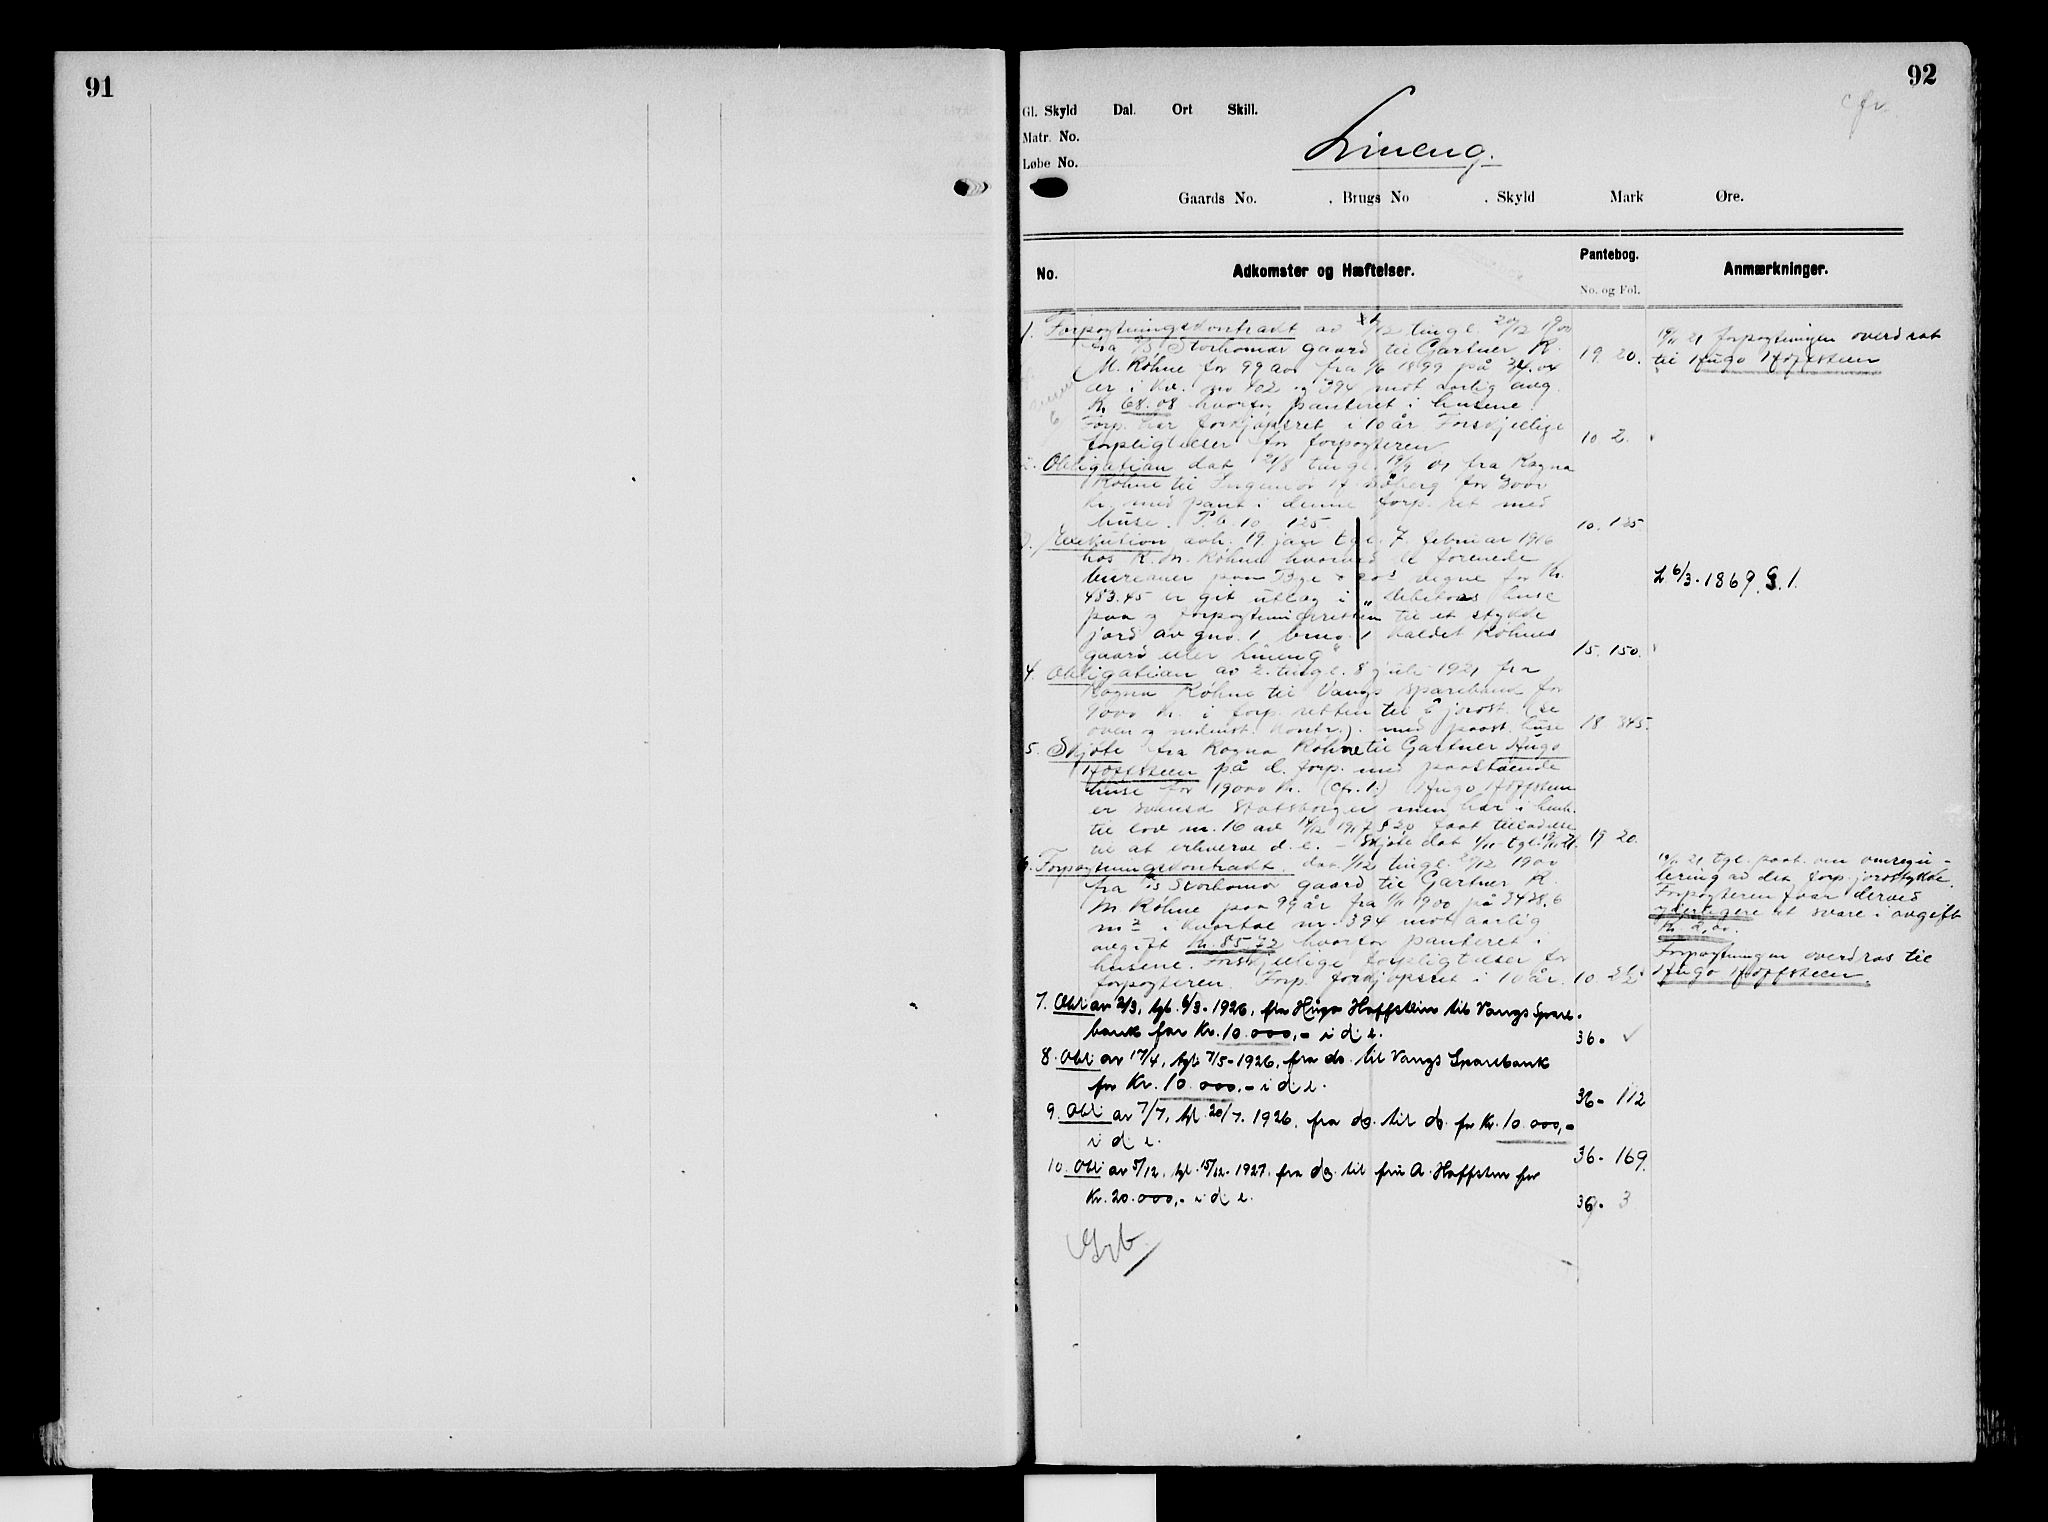 91
92
cfr.
Gl. Skyld Dal. Ort Skill.
Matr. No.
Løbe No.
Lineng.
Gaards No. , Brugs No , Skyld Mark Øre.
No. Adkomster og Hæftelser. Pantebog. Anmærkninger.
No. og Fol.
1. Forpagtningskontrakt av /12 tingl. 20/12 1900
fra Storhamar gaard til Gartner K.
M. Røhne for 99 aar fra 1/6 1899 på
er i kv. no 402 og 394 mot aarlig avg.
Kr. 68.08 hvorfor panteret i husene.
Forp. har forkjøpsret i 10 år Forskjellige
forpligtelser for forpagteren
19 20.
10 2.
19/11 21 forpagtningen overdrat
til Hugo Hoffsteen
2. Obligation dat. 21/8 tingl. 19/9 01 fra Ragna
Røhne til Ingeniør H. for 3000
kr. med pant i denne forp. ret med
huse. P.b. 10 125.
10. 125
3. Exekution avh. 19. jan tgl. 7. februar 1916
hos K. M. Røhne hvorved de forenede
bureauer paa vegne for Kr.
453.45 er git utlæg i „debitors huse
paa og forpagtningsretten til et stykke
jord av gno. 1 bruno. 1 kaldet Røhnes
gaard eller Lineng"
15. 150.
L. 6/3. 1869 § 1.
4. Obligation av 2. tingl. 8 juli 1921 fra
Ragna Røhne til Vangs sparebank for
9000 kr. i forp. retten til jordst. (se
oven og nedenst. kontr.). med paast. huse
18 345.
5. Skjøte fra Ragna Røhne til Gartner Hugo
Hoffsteen på d. forp. med paastaaende
huse for 19000 kr. (cfr. 1.) Hugo Hoffsteen
er svensk Statsborger men har i henh.
til lov nr. 16 av 14/12 1917 § 20 faat tilladelse
til at erhverve d. e. - Skjøte dat 1/11 tgl. 19/11 21.
19 20.
6. Forpagtningskontrakt. dat. 1/12 tingl. 20/12 1900
fra Storhamar gaard til Gartner K.
M. Røhne paa 99 år fra 1/11 1900 på 3428.6
m2 i kvartal nr. 394 mot aarlig
avgift Kr. 85,72 hvorfor panteret i
husene. Forskjellige forpligtelser for
forpagteren. Forp. forkjøpsret i 10 år.
10.
19/11 21 tgl. paat. om omregu-
lering av det forp. jordstykke.
Forpagteren faar derved
yderligere at svare i avgift
Kr. 2,00.
Forpagtningen overdras til
Hugo Hoffsteen.
7. Obl. av 2/3, tgl. 6/3. 1926, fra Hugo Hoffsteen til Vangs Spare-
bank for Kr. 10.000,- i d. e.
36. ✓
8. Obl. av 17/4, tgl. 7/5-1926, fra do. til Vangs Sparebank
for Kr. 10.000,- i d. e.
36- 112
9. Obl. av 7/7, tgl. 20/7. 1926, fra do. til do. for Kr. 10.000,-
i d. e.
36- 169.
10. Obl. av 5/12, tgl. 15/12. 1927. fra do. til fru A. Hoffsteen for
Kr. 20.000,- i d. e.
39. 3